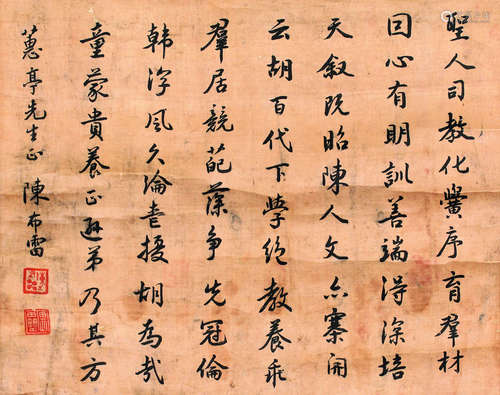 聖人司教化黌序育羣材
因心有明訓善端得深培
天叙既昭陳人文亦褰開
云胡百代下學絶教養乖
羣居競葩藻爭先冠倫
韓淳風久淪喪擾胡為哉
童蒙貴養正遜弟乃其方
蕙亭先生正 陳布雷